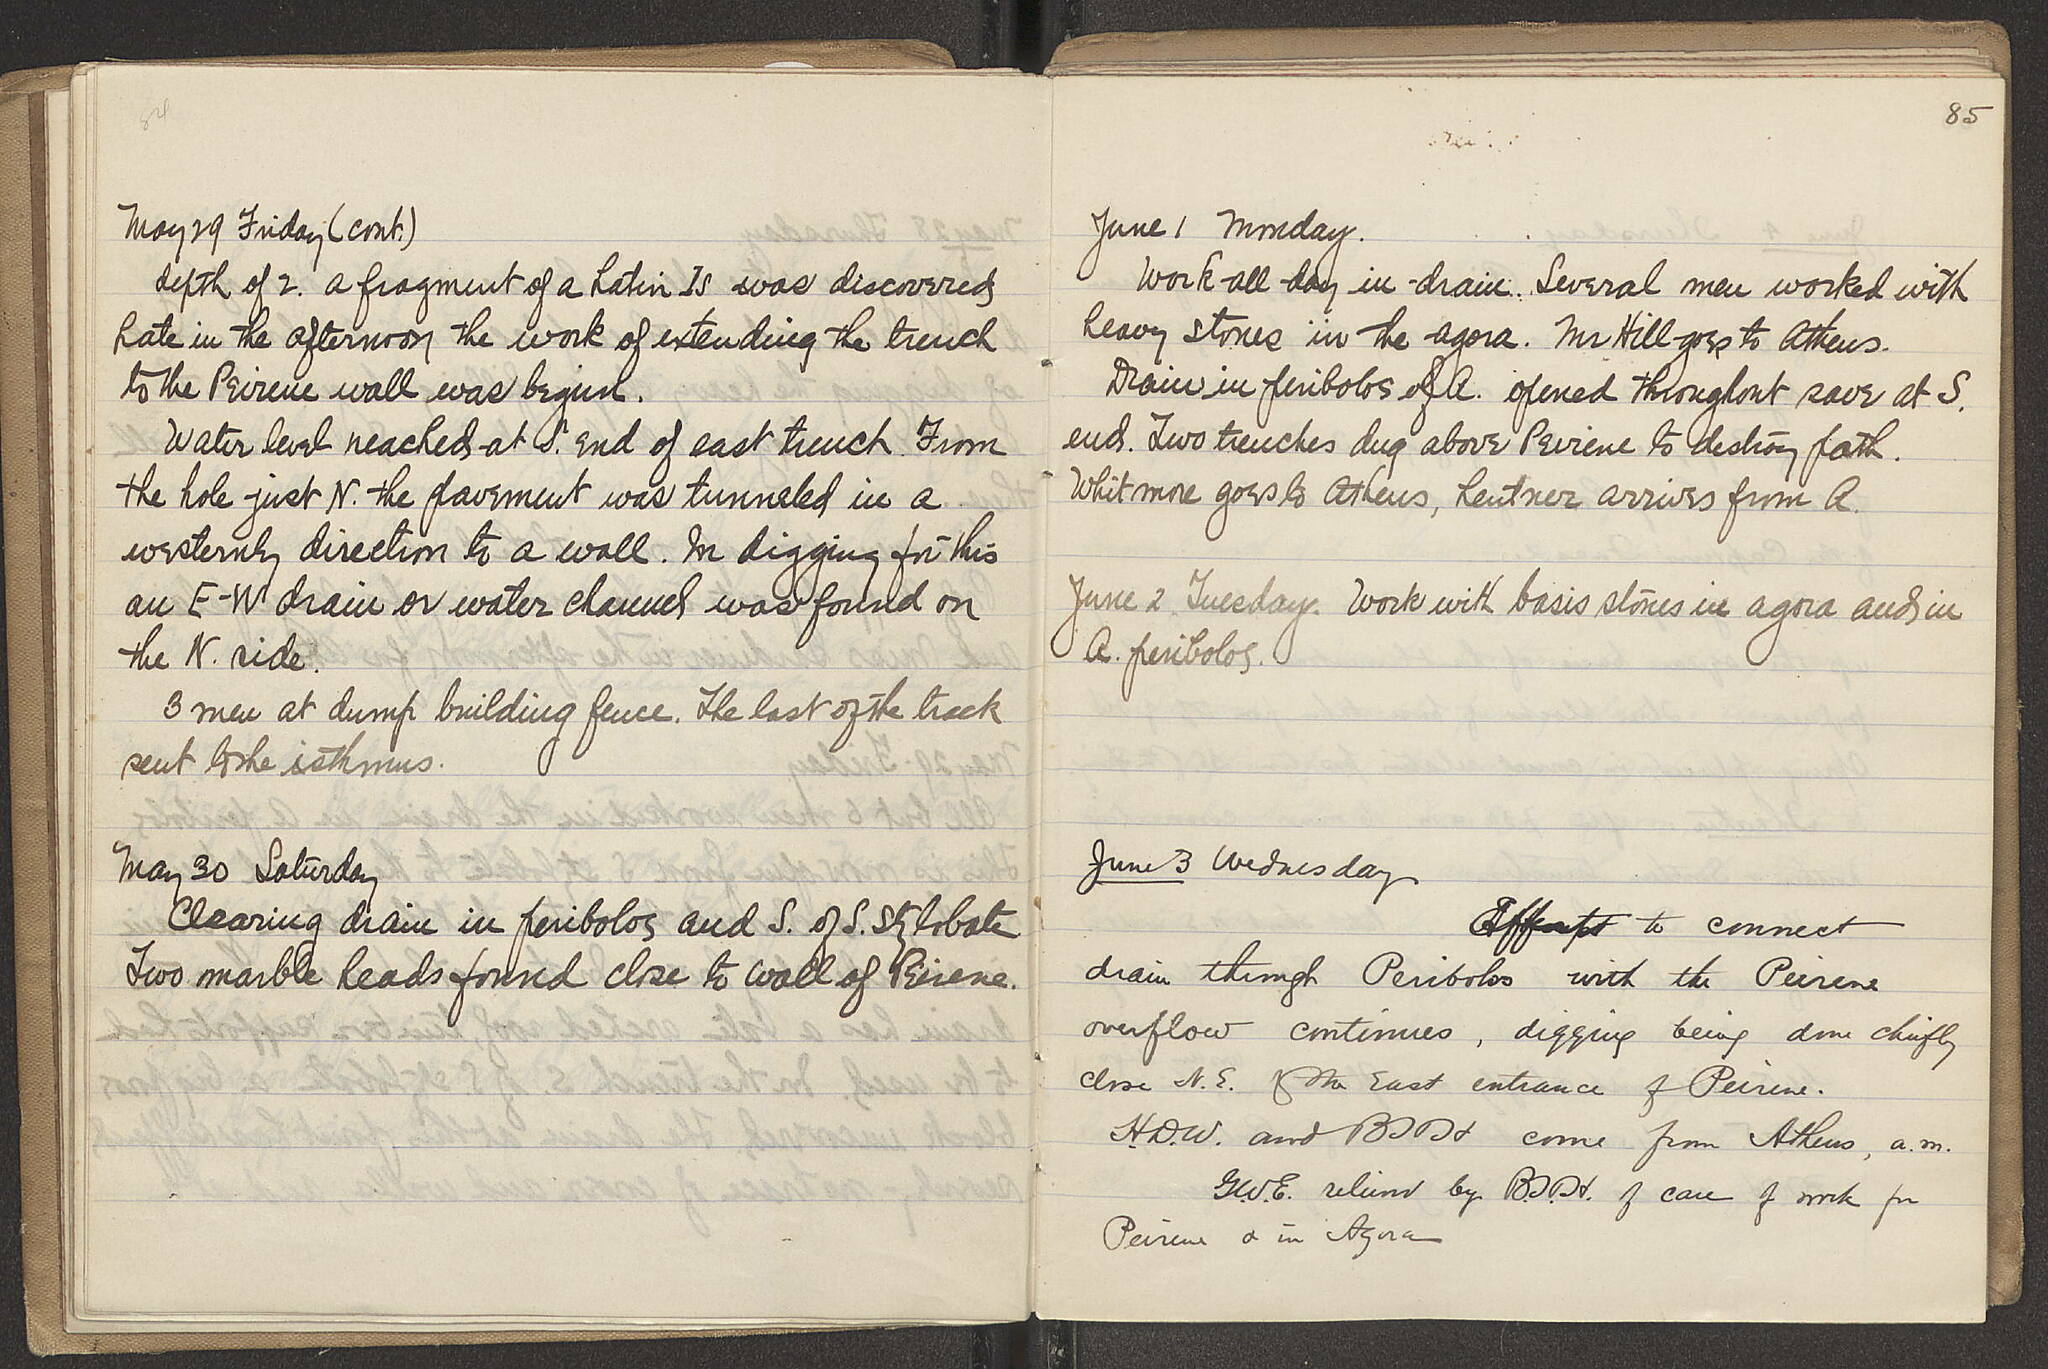 84
May 29 Friday (cont.)
depth of 2. a fragment of a Latin Is was discovered
Late in the afternoon the work of extending the trench
to the Peirene wall was begun.
Water level reached at S. end of east trench. From
the hole just N. the pavement was tunneled in a
westernly direction to a wall. In digging for this
an E-W drain or water channel was found on
the N. side.
3 men at dump building fence. The last of the track
sent to the isthmus.
May 30 Saturday
Clearing drain in peribolos and S. of S. stylobate
Two marble heads found close to wall of Peirene.
85
June 1 Monday.
Work all day in drain. Several men worked with
heavy stones in the agora. Mr Hill goes to Athens.
Drain in peribolos of A. opened throughout save at S.
end. Two trenches dug above Peirene to destroy path.
Whitmore goes to Athens, Leutner arrives from A.
June 2 Tuesday. Work with basis stones in agora and in
A. peribolos.
June 3 Wednesday
to connect
drain through Peribolos with the Peirene
overflow continues, digging being done chiefly
close N.E. of the East entrance of Peirene.
H.D.W. and B.H.H. come from Athens, a.m.
G.W.E. relieved by B.H.H. of care of work for
Peirene & in Agora